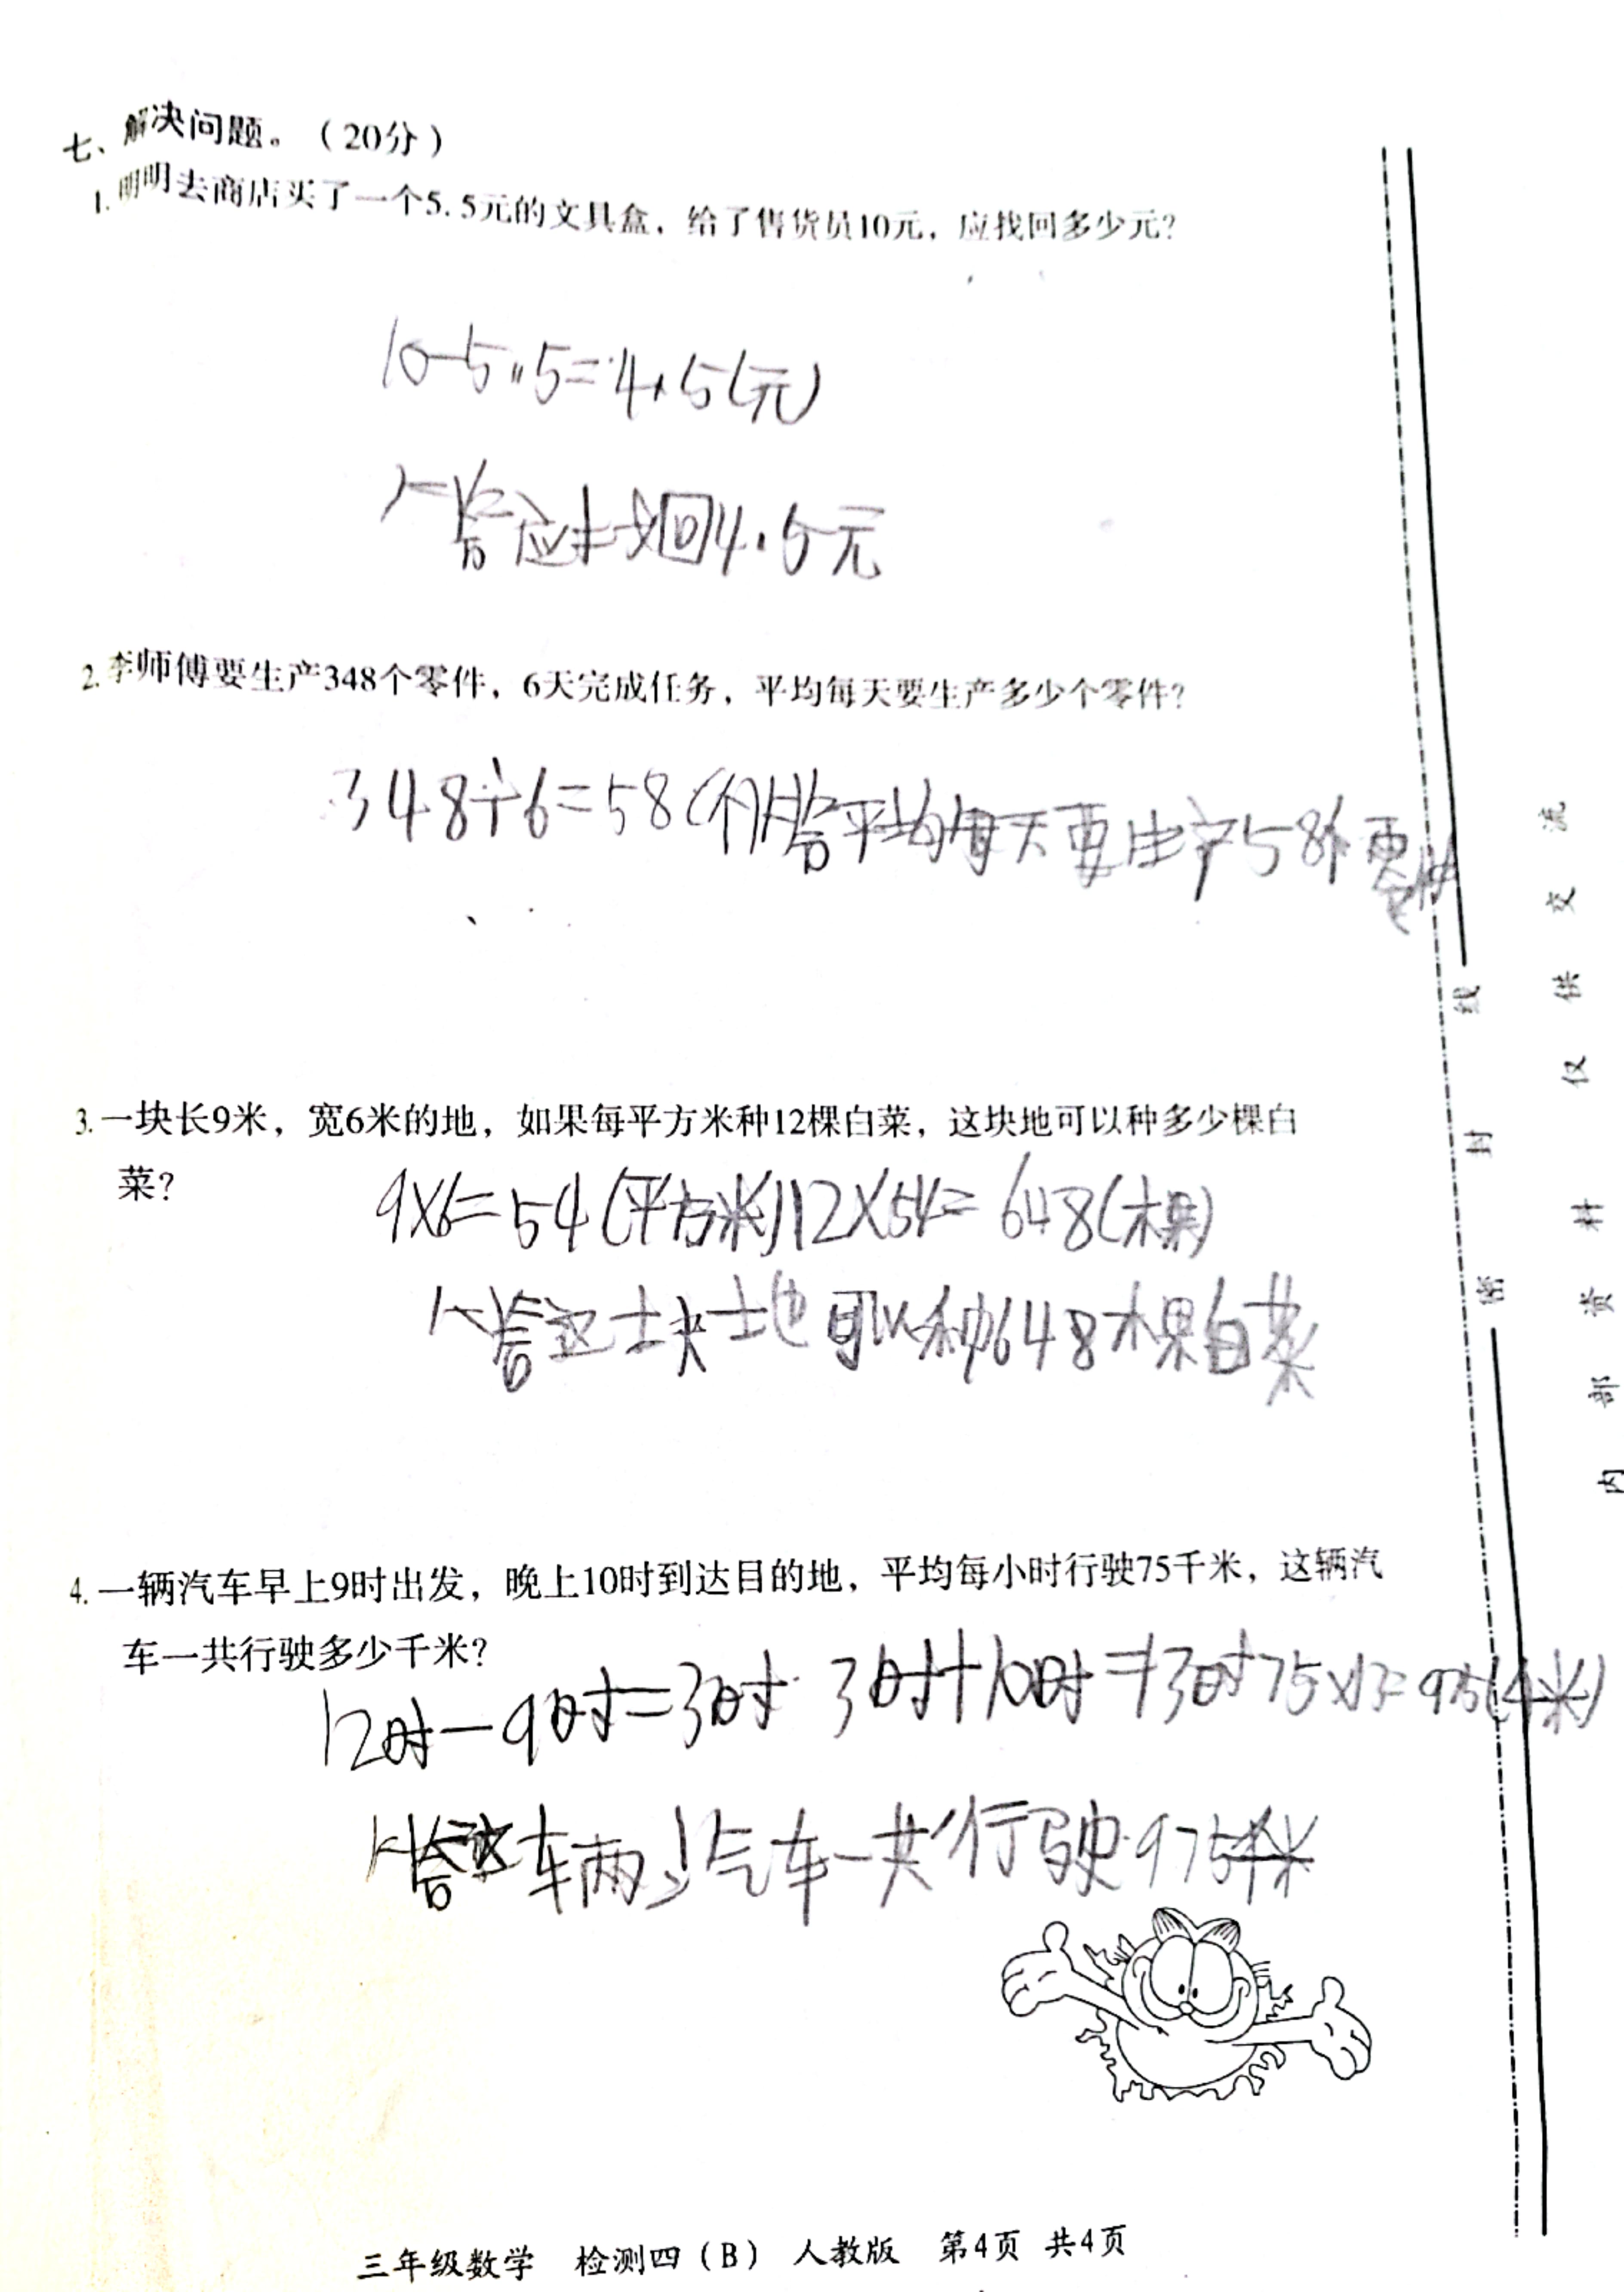 七、解决问题。（20分）
1.明明去商店买了一个5.5元的文具盒，给了售货员10元，应找回多少元？
10-5.5=4.5(元)
答应找回4.5元
2.李师傅要生产348个零件，6天完成任务，平均每天要生产多少个零件？
348÷6=58(个)答平均每天要生产58个零件
3.一块长9米，宽6米的地，如果每平方米种12棵白菜，这块地可以种多少棵白
菜？
9×6=54(平方米)12×54=648(棵)
答这块地可以种648棵白菜
4.一辆汽车早上9时出发，晚上10时到达目的地，平均每小时行驶75千米，这辆汽
车一共行驶多少千米？
12时-9时=3时 3时+10时=13时75×13=975(千米)
答这辆汽车一共行驶975千米
三年级数学 检测四（B） 人教版 第4页 共4页
密 封 线
内 部 资 料 仅 供 交 流